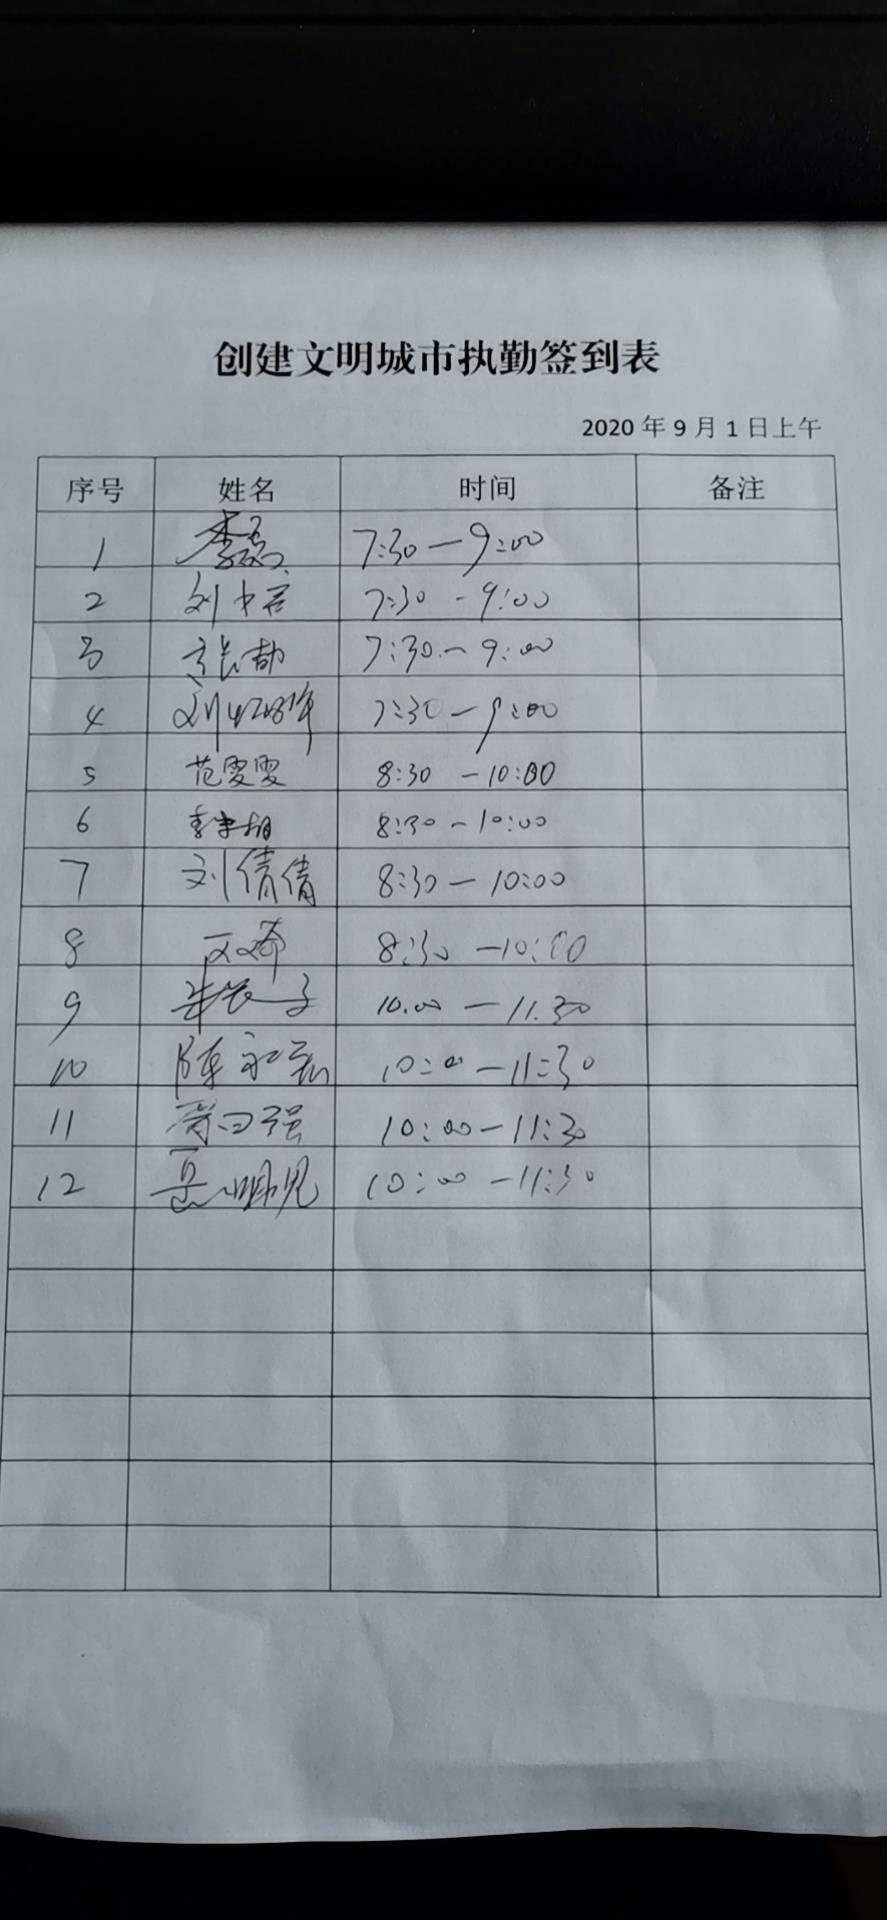 创建文明城市执勤签到表
2020年9月1日上午
序号 姓名 时间 备注
1 李磊 7:30—9:00
2 刘 7:30-9:00
3 7:30-9:00
4 刘 7:30-9:00
5 范雯雯 8:30-10:00
6 李 8:30-10:00
7 刘倩倩 8:30-10:00
8 8:30-10:00
9 10.00-11.30
10 陈永 10:00-11:30
11 强 10:00-11:30
12 岳 10:00-11:30